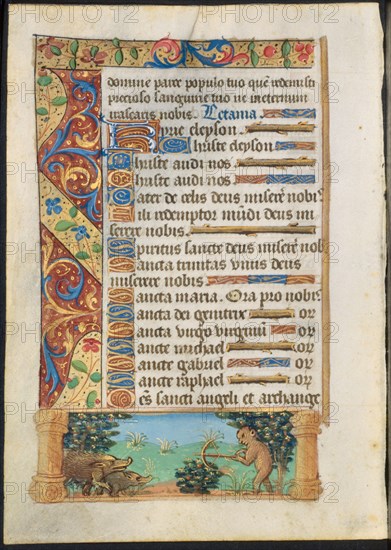 domine parce populo tuo quem redemisti
precioso sanguine tuo ne in eternum
irascaris nobis. Letania.
Kyrie eleyson.
Christe eleyson
Christe audi nos
Christe audi nos
Pater de celis deus miserere nobis
Fili redemptor mūdi deus mi
serere nobis
Spiritus sancte deus miserere nob
Sancta trinitas unus deus
miserere nobis
Sancta maria. Ora pro nobis
Sancta dei genitrix or
Sancta virgo virginū or
Sancte michael or
Sancte gabriel or
Sancte raphael or
Oēs sancti angeli et archange